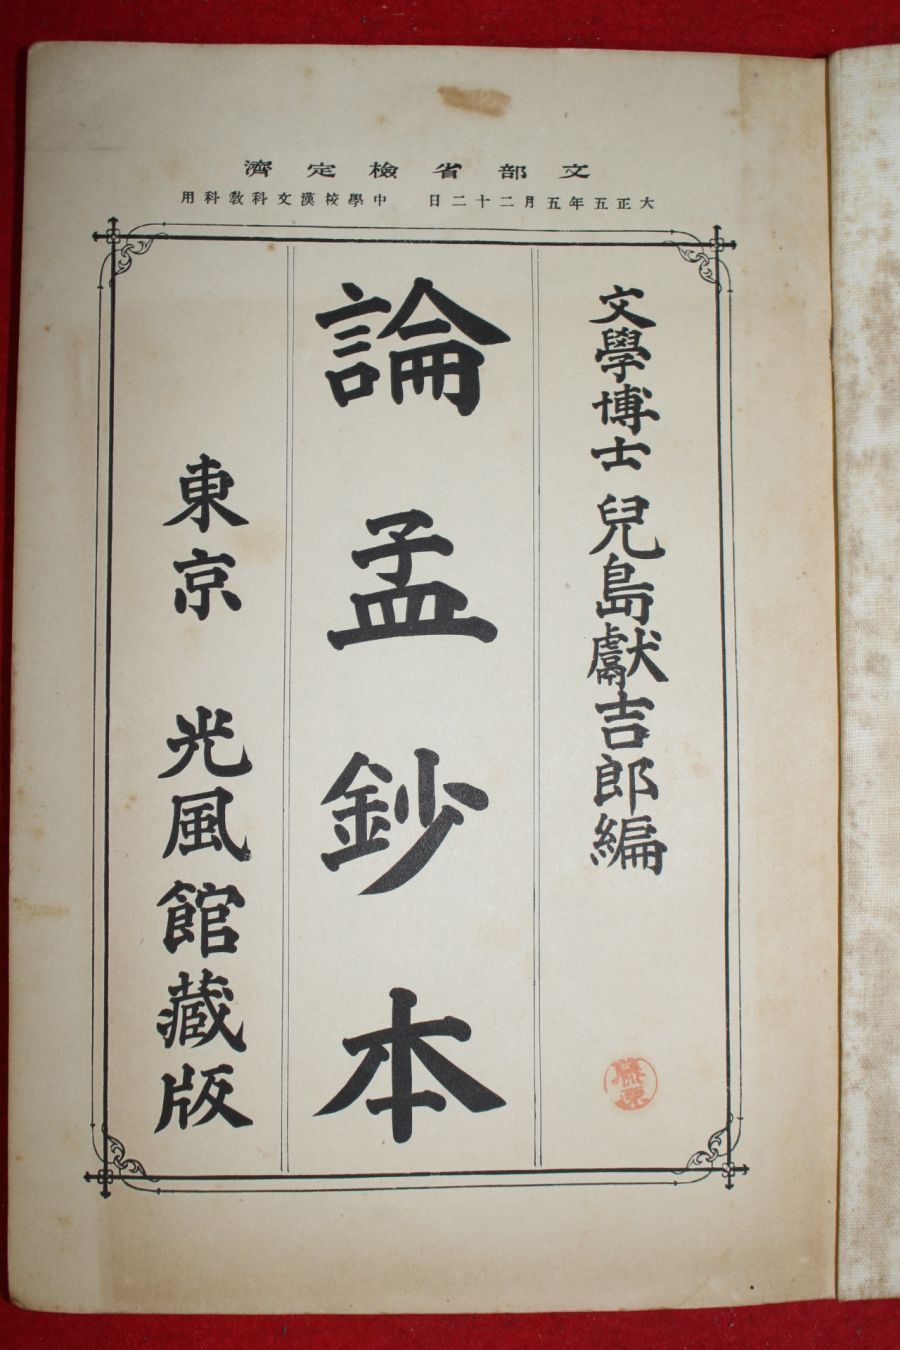 文部省檢定濟
大正五年五月二十二日 中學校漢文科敎科用
文學博士 兒島獻吉郎編
論孟鈔本
東京 光風館藏版
藤原